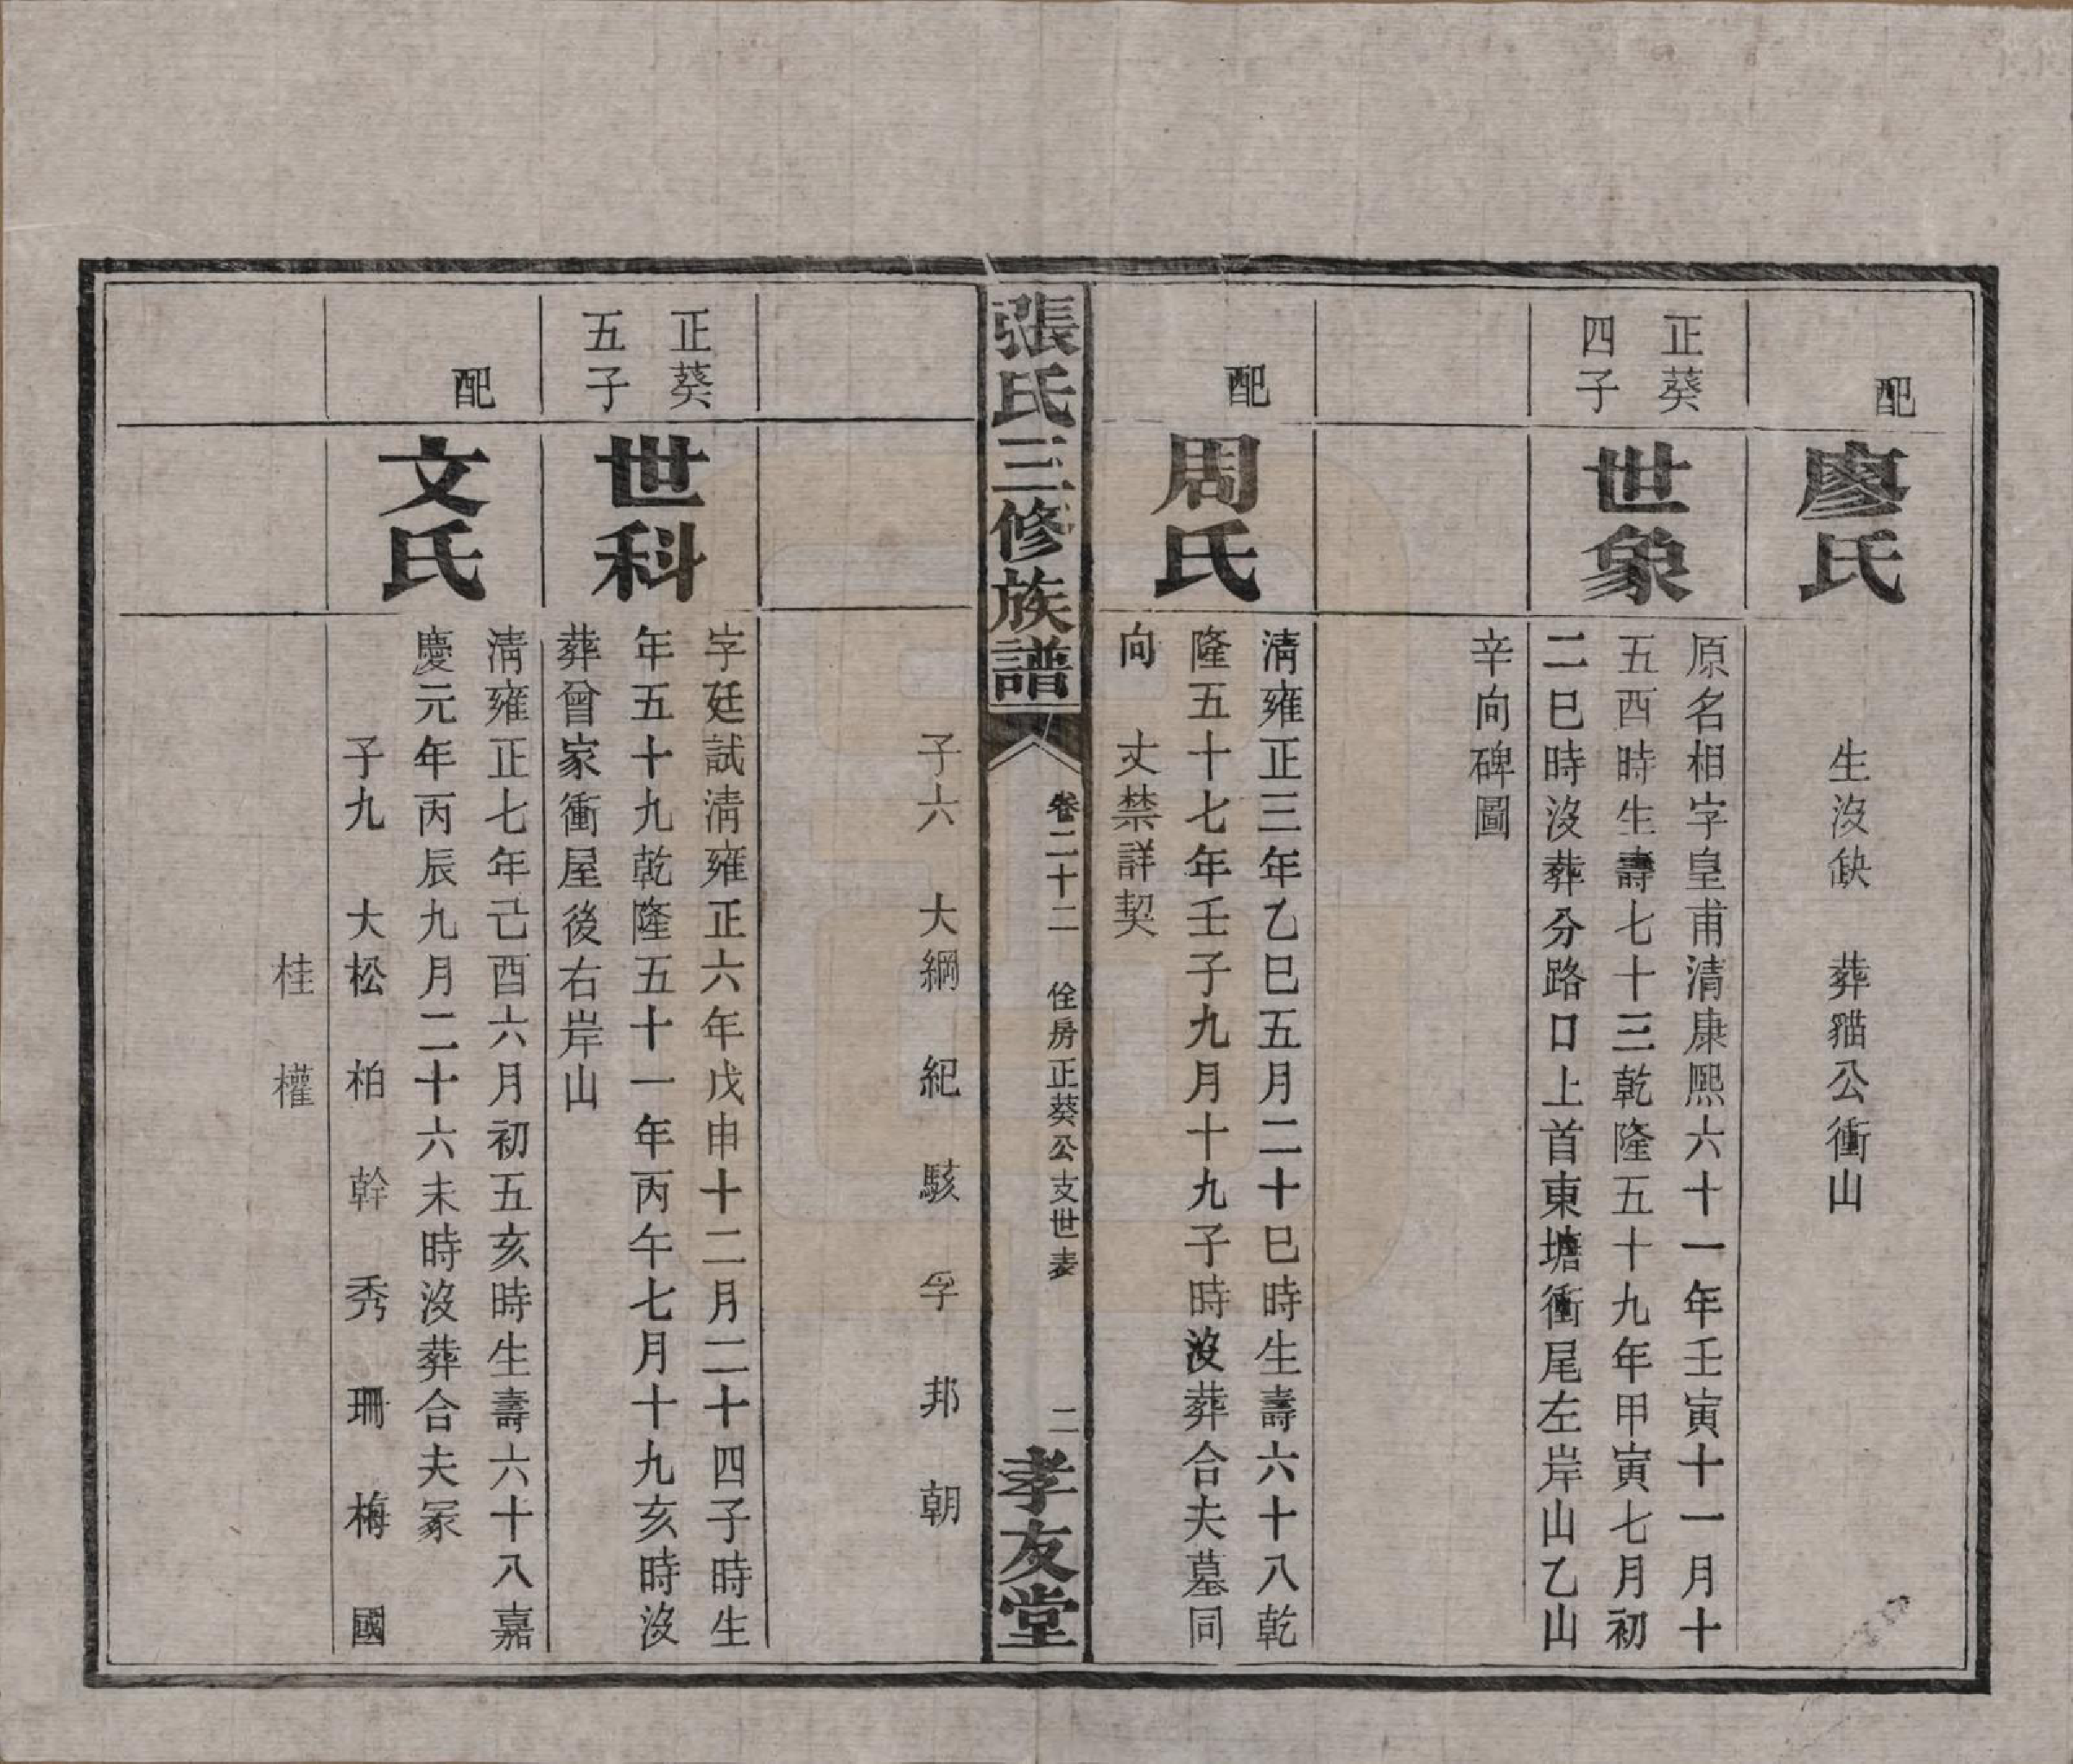 配
廖氏
生沒缺　葬貓公衝山
正葵
四子
世象
原名相字皇甫清康熙六十一年壬寅十一月十
五酉時生壽七十三乾隆五十九年甲寅七月初
二巳時沒葬分路口上首東塘衝尾左岸山乙山
辛向碑圖
配
周氏
清雍正三年乙巳五月二十巳時生壽六十八乾
隆五十七年壬子九月十九子時沒葬合夫墓同
向　丈禁詳契
張氏三修族譜
卷二十二　佺房正葵公支世表　二
孝友堂
子六　大綱　紀　駭　孚　邦　朝
正葵
五子
世科
字廷試清雍正六年戊申十二月二十四子時生
年五十九乾隆五十一年丙午七月十九亥時沒
葬曾家衝屋後右岸山
配
文氏
清雍正七年己酉六月初五亥時生壽六十八嘉
慶元年丙辰九月二十六未時沒葬合夫冢
子九　大松　柏　幹　秀　珊　梅　國
桂　權